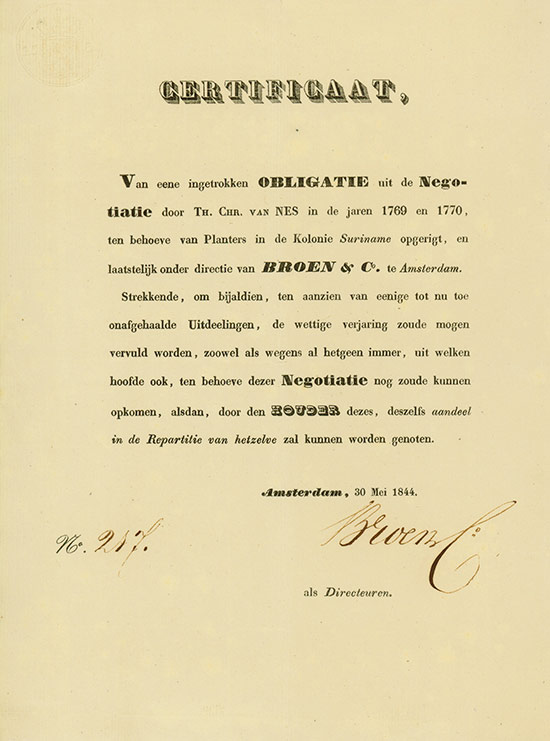 CERTIFICAAT,
Van eene ingetrokken OBLIGATIE uit de Nego-
tiatie door TH. CHR. VAN NES in de jaren 1769 en 1770,
ten behoeve van Planters in de Kolonie Suriname opgerigt, en
laatstelijk onder directie van BROEN & Co. te Amsterdam.
Strekkende, om bijaldien, ten aanzien van eenige tot nu toe
onafgehaalde Uitdeelingen, de wettige verjaring zoude mogen
vervuld worden, zoowel als wegens al hetgeen immer, uit welken
hoofde ook, ten behoeve dezer Negotiatie nog zoude kunnen
opkomen, alsdan, door den HOUDER dezes, deszelfs aandeel
in de Repartitie van hetzelve zal kunnen worden genoten.
Amsterdam, 30 Mei 1844.
No. 217.
Broen Co
als Directeuren.